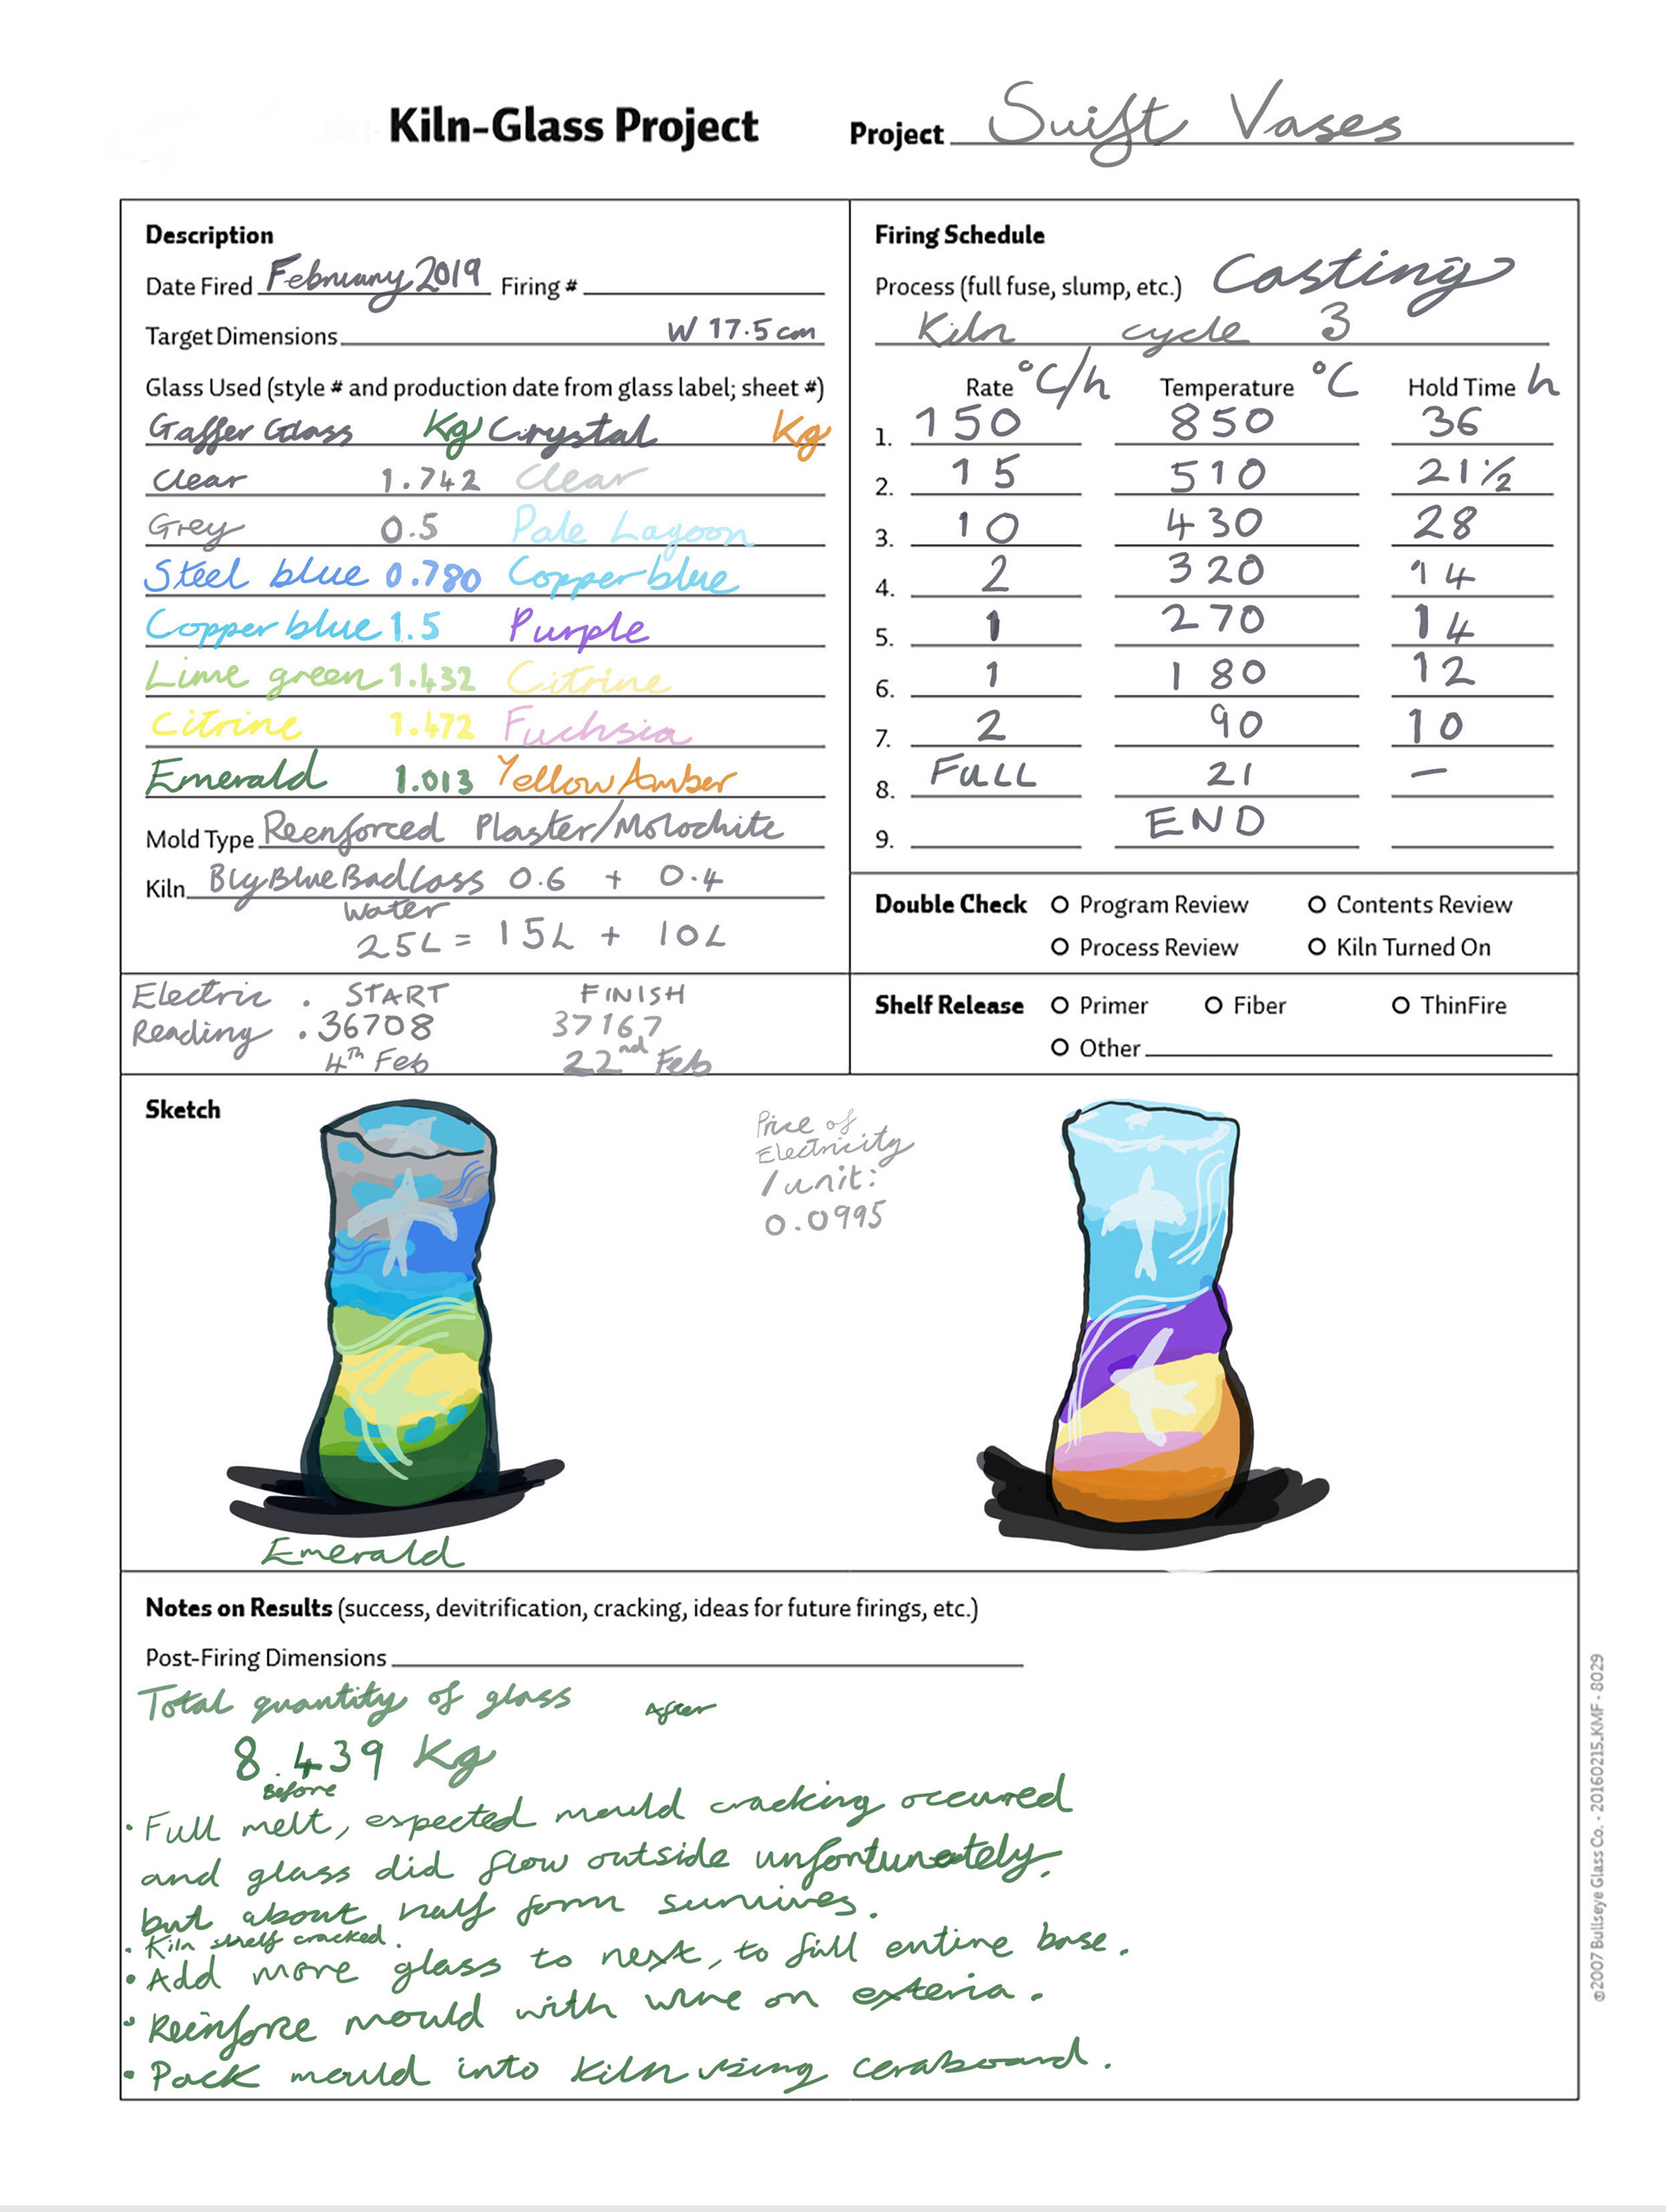 Kiln-Glass Project
Project Swift Vases
Description
Date Fired February 2019 Firing #
Target Dimensions W 17.5cm
Glass Used (style # and production date from glass label; sheet #)
Gaffer Glass Kg Crystal Kg
Clear 1.742 Clear
Grey 0.5 Pale Lagoon
Steel blue 0.780 Copper blue
Copper blue 1.5 Purple
Lime green 1.432 Citrine
Citrine 1.472 Fuchsia
Emerald 1.013 Yellow Amber
Mold Type Reenforced Plaster/Molochite
Kiln BigBlueBadLass 0.6 + 0.4
Water
25L = 15L + 10L
Firing Schedule
Process (full fuse, slump, etc.) Casting
Kiln cycle 3
Rate °C/h Temperature °C Hold Time h
1. 150 850 36
2. 15 510 21 1/2
3. 10 430 28
4. 2 320 14
5. 1 270 14
6. 1 180 12
7. 2 90 10
8. FULL 21 —
9. END
Double Check Program Review Contents Review
Process Review Kiln Turned On
Electric . START FINISH
Reading . 36708 37167
4th Feb 22nd Feb
Shelf Release Primer Fiber ThinFire
Other
Sketch
Price of
Electricity
/ unit:
0.0995
Emerald
Notes on Results (success, devitrification, cracking, ideas for future firings, etc.)
Post-Firing Dimensions
Total quantity of glass After
8.439 Kg
Before
• Full melt, expected mould cracking occured
and glass did flow outside unfortunately.
but about half form survives.
• Kiln shelf cracked.
• Add more glass to next, to fill entire base.
• Reinforce mould with wire on exteria.
• Pack mould into kiln using ceraboard.
©2007 Bullseye Glass Co. - 20160215.KMF - 8029